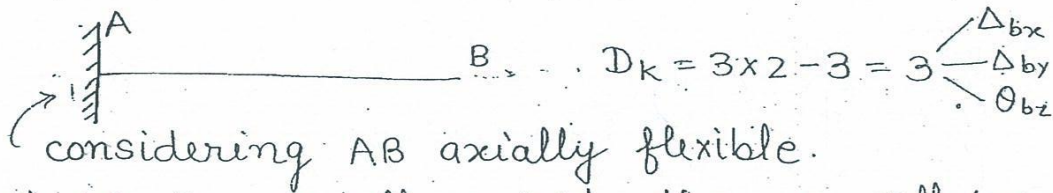 A
B
D_K = 3×2-3 = 3
Δbx
Δby
θbz
considering AB axially flexible.